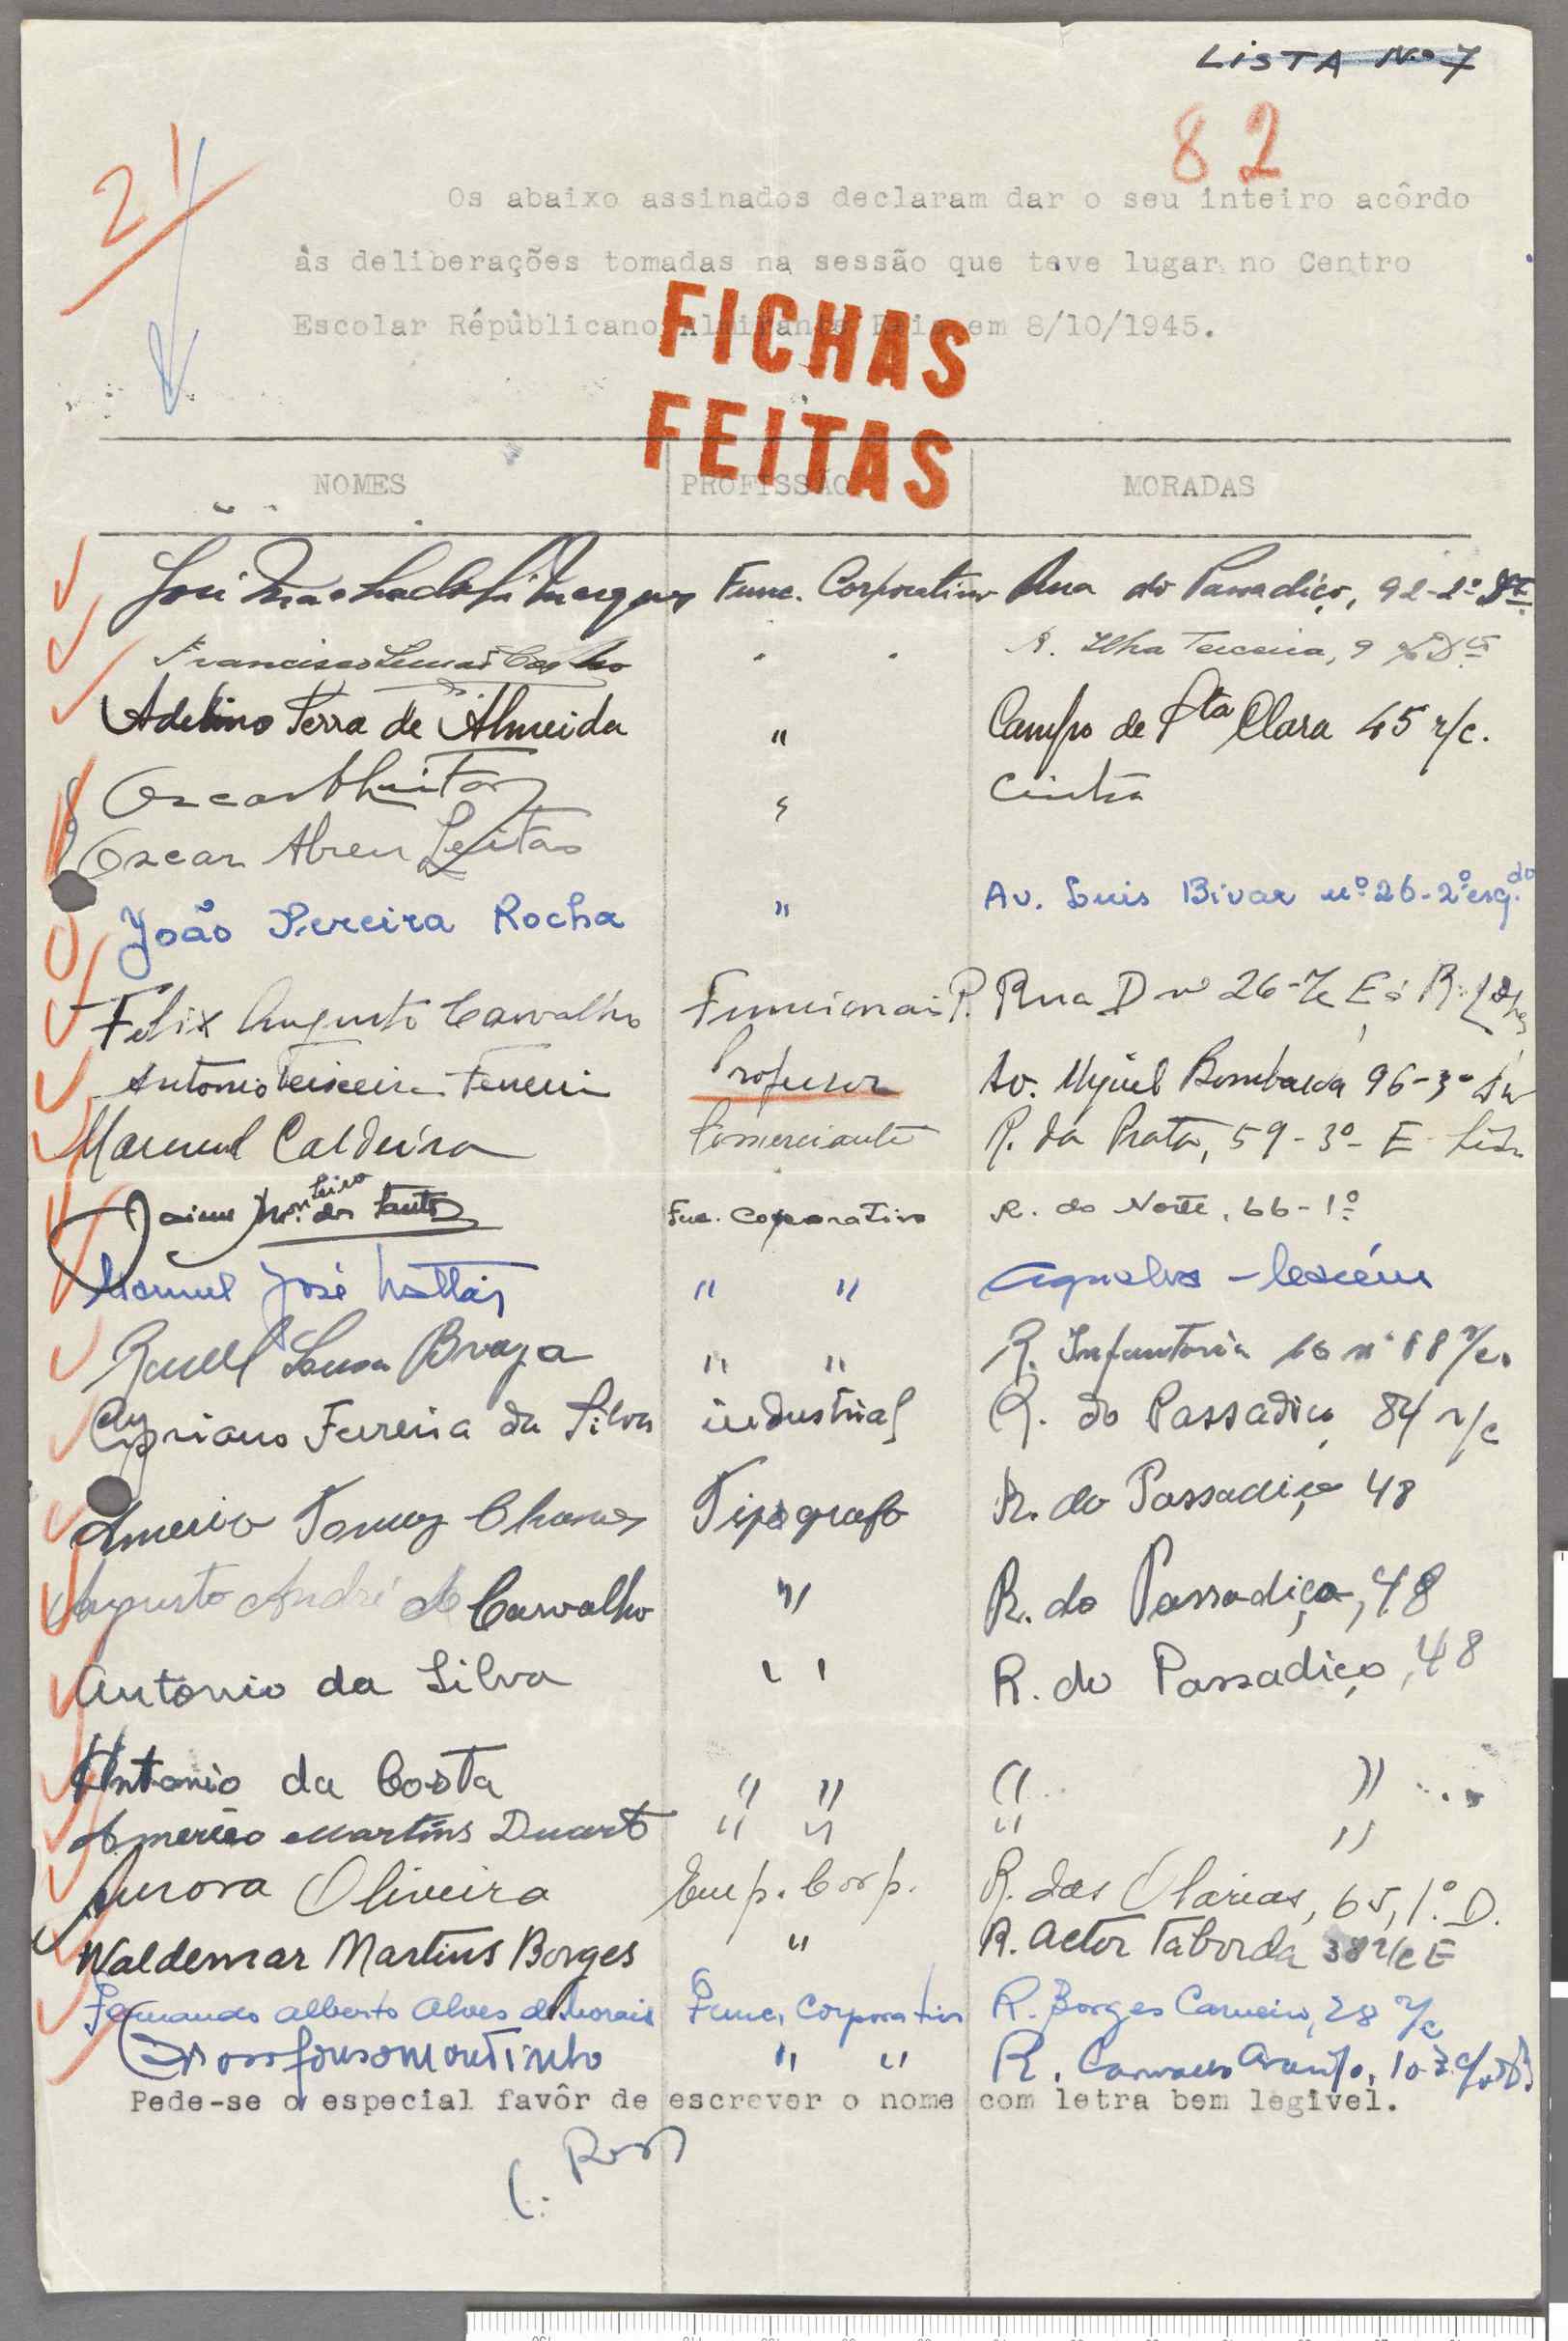 LISTA N.º 7
82
21
Os abaixo assinados declaram dar o seu inteiro acôrdo
às deliberações tomadas na sessão que teve lugar no Centro
Escolar Républicano Almirante Reis em 8/10/1945.
FICHAS
FEITAS
NOMES PROFISSÃO MORADAS
José Machado Func. Corporativo Rua do Passadiço, 92-2º
Francisco R. Ilha Terceira, 9
Adelino Serra de Almeida " Campo de Sta Clara 45 r/c.
Oscar Cintra
Oscar Abreu Leitão
João Pereira Rocha " Av. Luis Bivar nº 26-2º esq.do
Felix Augusto Carvalho Rua D nº 26
Antonio Teixeira Professor Av. Miguel Bombarda 96-3º
Manuel Caldeira Comerciante R. da Prata, 59-3º- E
Jaime Monteiro dos Santos Fun. Corporativo R. do Norte, 66-1º
Manuel José " " Agualva - Cacém
Raull Sousa Braga " " R. Infantaria 16 nº r/c.
Cypriano Ferreira da Silva industrial R. do Passadiço 84 r/c
Americo Tomaz Chaves Tipografo R. do Passadiço 48
Augusto André de Carvalho " R. do Passadiço, 48
Antonio da Silva " R. do Passadiço, 48
Antonio da Costa " " " "
Americo Martins Duarte " " " "
Aurora Oliveira Emp. Corp. R. das Olarias, 65, 1º. D.
Waldemar Martins Borges " R. Actor Taborda 38 r/c E
Fernando Alberto Alves de Morais Func. Corporativo R. Borges Carneiro, 28 r/c
Moutinho " " R. Araujo,
Pede-se o especial favôr de escrever o nome com letra bem legivel.